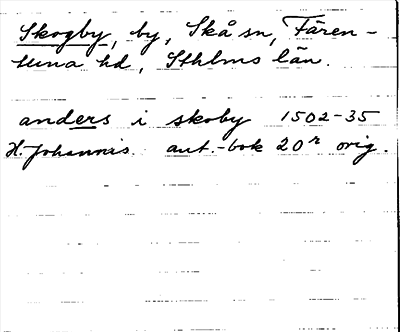 Skogby, by, Skå sn, Fären-
tuna hd, Sthlms län.
anders i skoby 1502-35
H. Johannis. ant.-bok 20r orig.